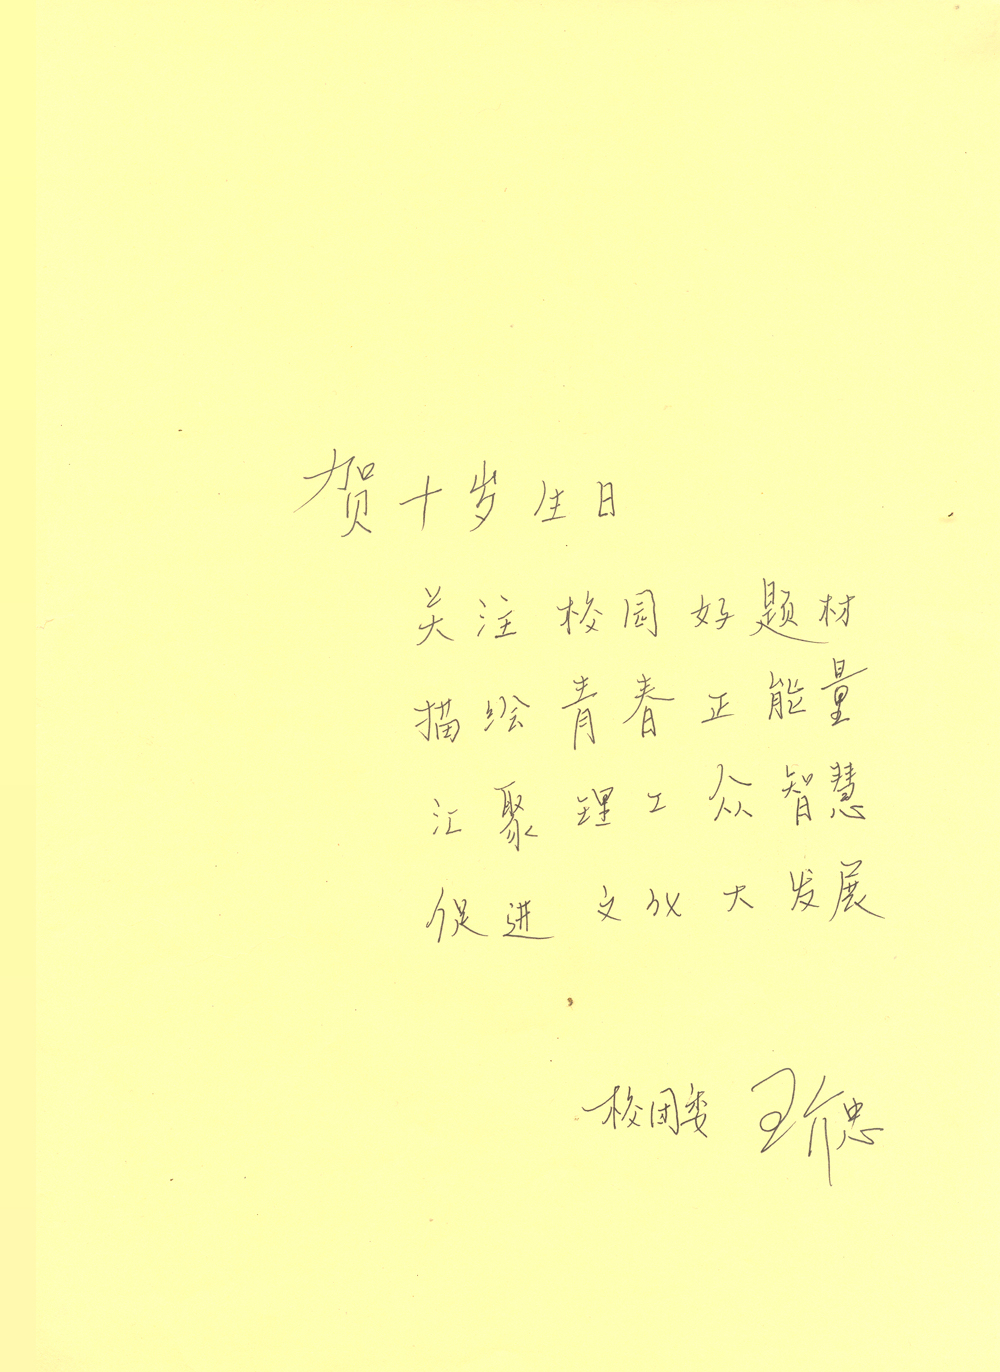 贺十岁生日
关注校园好题材
描绘青春正能量
汇聚理工众智慧
促进文化大发展
校团委 王介忠